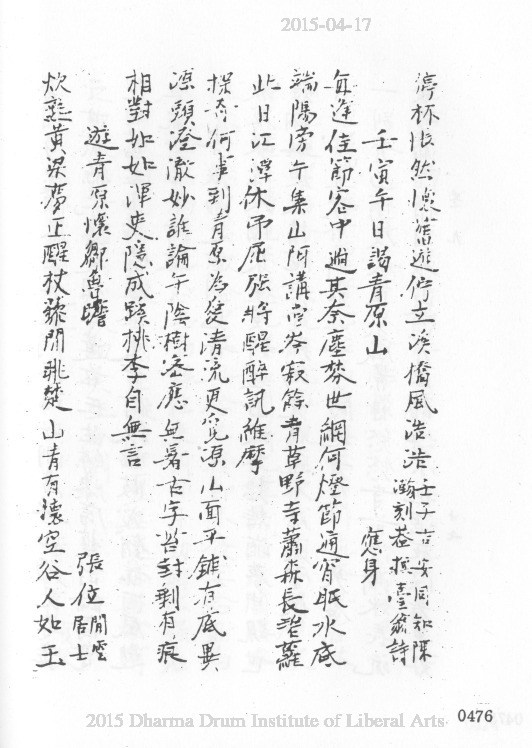 2015-04-17
停杯悵然懷舊遊佇立溪橋風浩浩 壬子吉安同知陳
瀚刻
壬寅午日謁青原山 應身
每逢佳節客中過其奈塵勞世網何燈節通宵眠水底
端陽傍午集山阿講堂岑寂餘青草野寺蕭森長碧蘿
此日江潭休弔屈強將醒醉訊維摩
探奇何事到青原為愛清流更覓源山面平鋪有底異
源頭澄澈妙誰論午陰樹密應無暑古字苔封剩有痕
相對如如渾吏隱成蹊桃李自無言
遊青原懷鄒魯瞻 張位 閒雲居士
炊熟黃粱夢正醒杖藜閒眺楚山青有懷空谷人如玉
0476
2015 Dharma Drum Institute of Liberal Arts